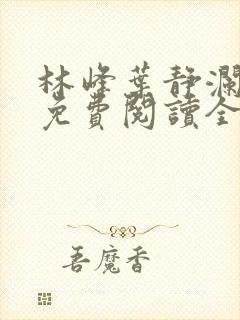 林峰葉静瀾
免費閱讀全
吾魔香